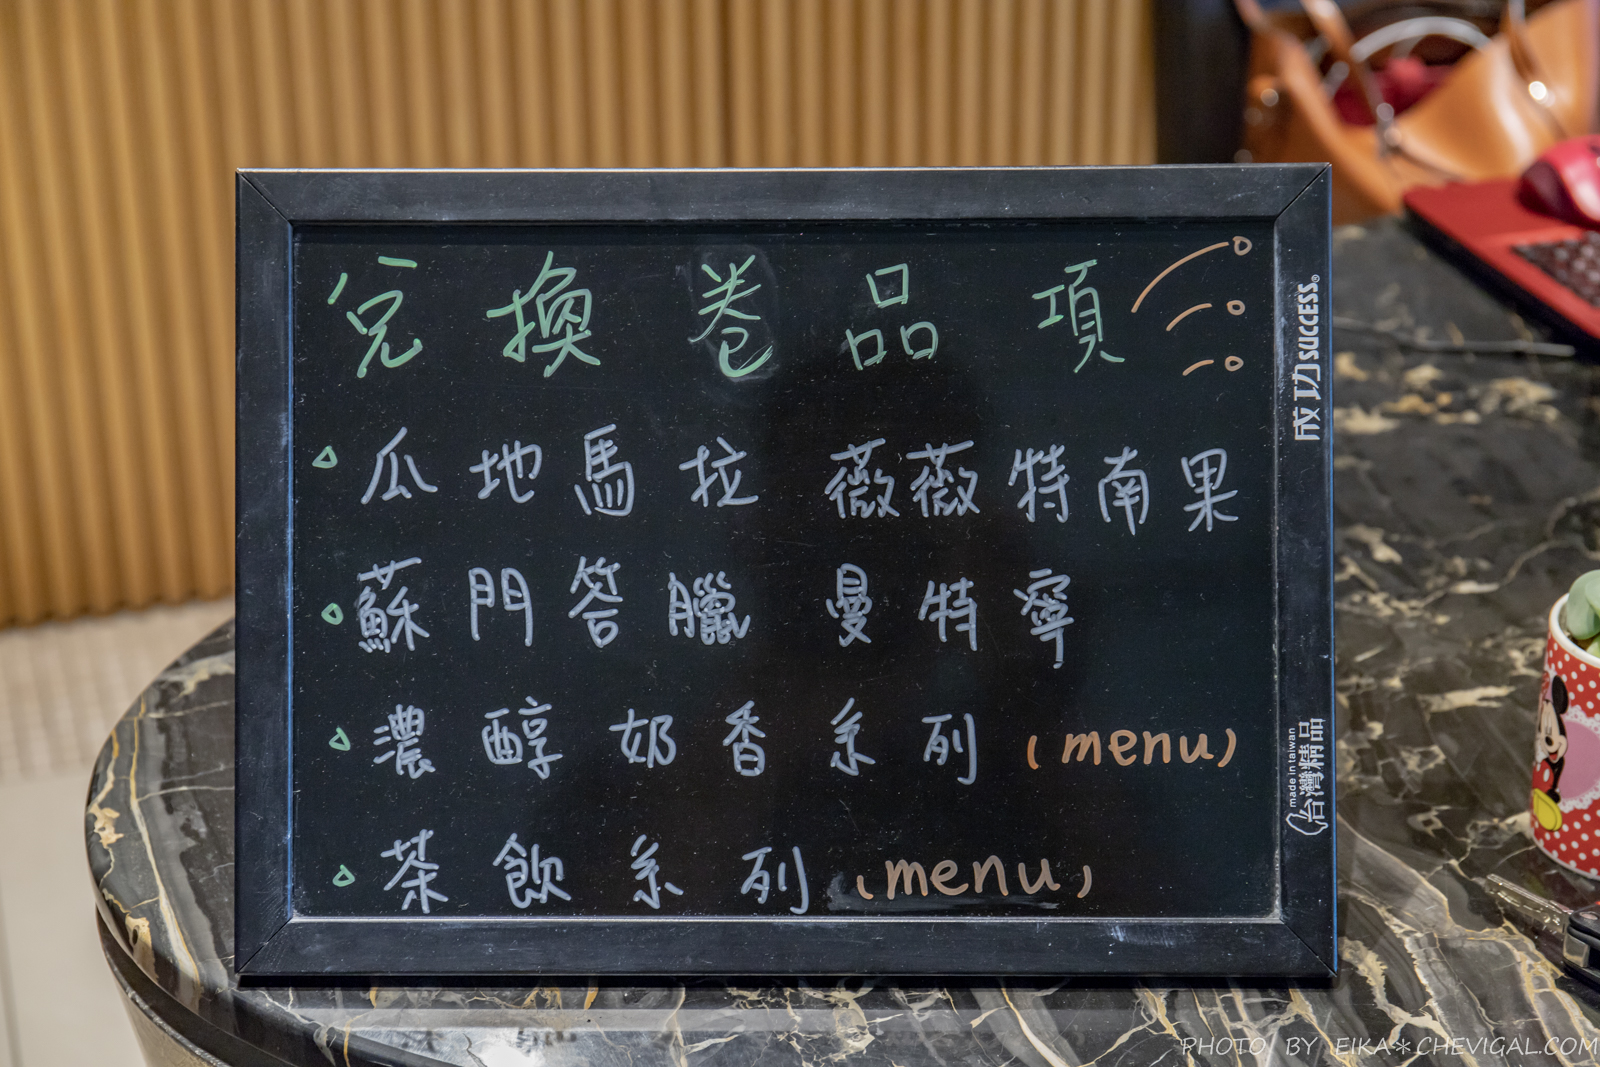 兌換卷品項
瓜地馬拉 薇薇特南果
蘇門答臘 曼特寧
濃醇奶香系列 (menu)
茶飲系列 (menu)
成功 SUCCESS®
made in taiwan
台灣精品
PHOTO BY EIKA*CHEVIGAL.COM